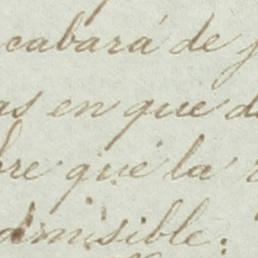 cabará de
as en que
bre que la
admisible: